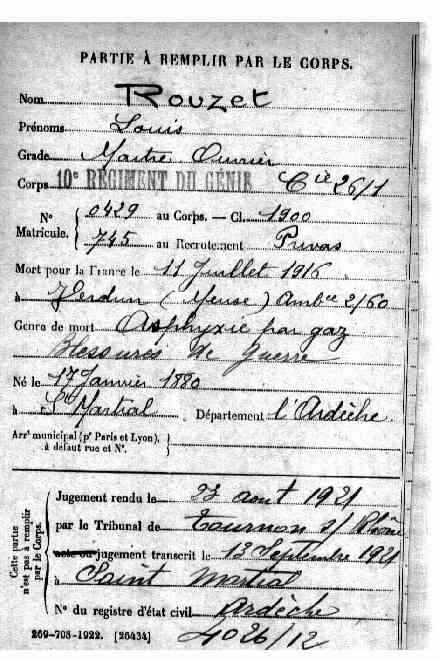 PARTIE À REMPLIR PAR LE CORPS.
Nom Rouzet
Prénoms Louis
Grade Maitre Ouvrier
Corps 10e RÉGIMENT DU GÉNIE Cie 26/1
N° Matricule. { 0429 au Corps. — Cl. 1900
745 au Recrutement Privas
Mort pour la France le 11 Juillet 1916
à Verdun (Meuse) Ambce 2/60
Genre de mort Asphyxie par gaz
Blessures de Guerre
Né le 17 Janvier 1880
à St Martial Département l'Ardèche
Arrt municipal (pr Paris et Lyon), à défaut rue et N°. }
Cette partie n'est pas à remplir par le Corps.
Jugement rendu le 23 aout 1921
par le Tribunal de Tournon s/ Rhône
acte ou jugement transcrit le 13 Septembre 1921
à Saint Martial
N° du registre d'état civil Ardèche
269-708-1922. [26434] 4026/12